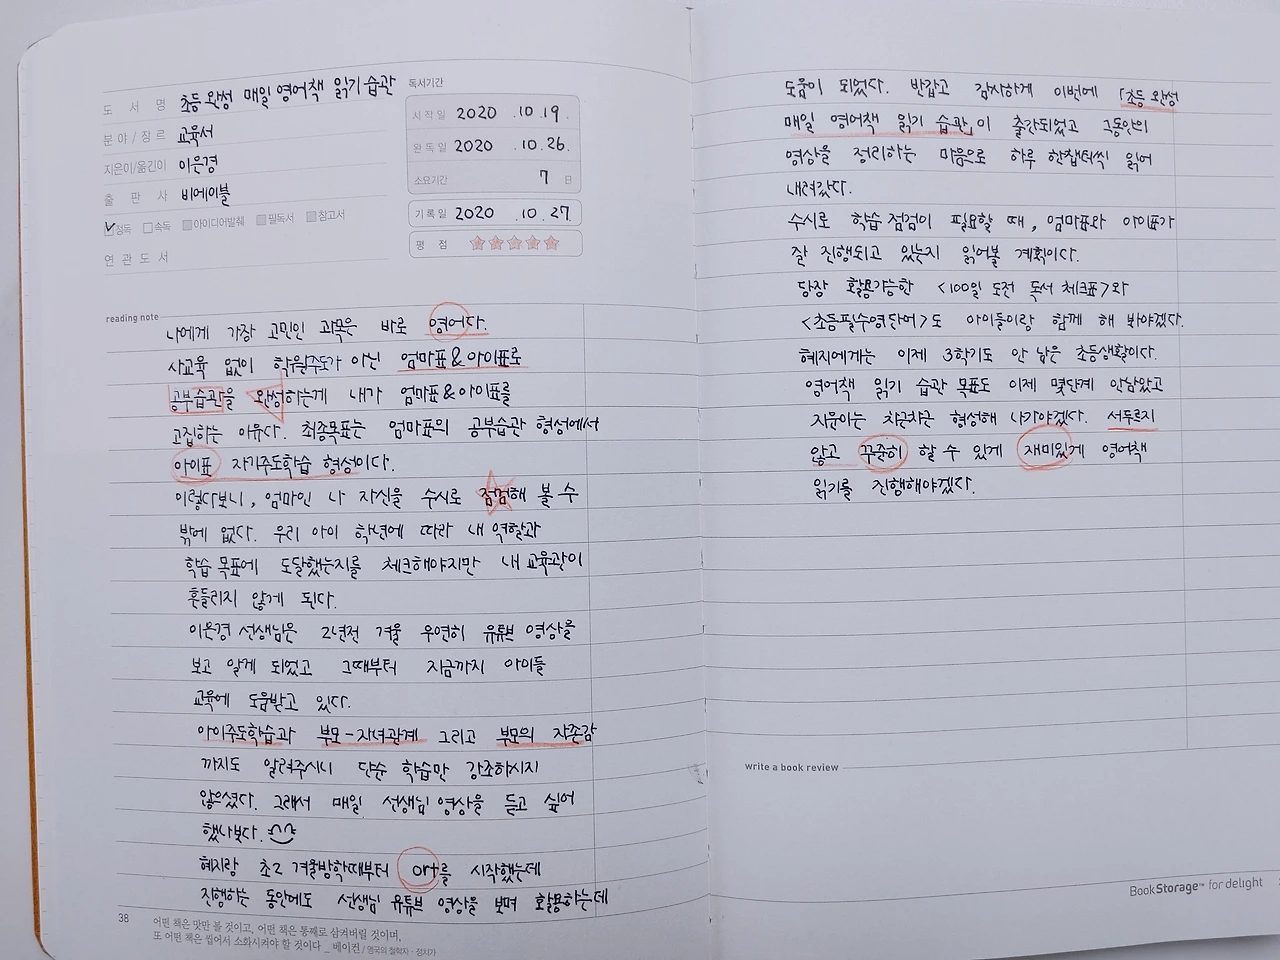 도서명 초등 완성 매일 영어책 읽기 습관
분야/장르 교육서
지은이/옮긴이 이은경
출판사 비에이블
정독 속독 아이디어발췌 필독서 참고서
연관도서
독서기간
시작일 2020 .10 .19.
완독일 2020 .10.26.
소요기간 7 일
기록일 2020 .10.27
평점
reading note
나에게 가장 고민인 과목은 바로 영어다.
사교육 없이 학원주도가 아닌 엄마표&아이표로
공부습관을 완성하는게 내가 엄마표&아이표를
고집하는 이유다. 최종목표는 엄마표의 공부습관 형성에서
아이표 자기주도학습 형성이다.
이렇다보니, 엄마인 나 자신을 수시로 점검해 볼 수
밖에 없다. 우리 아이 학년에 따라 내 역할과
학습 목표에 도달했는지를 체크해야지만 내 교육관이
흔들리지 않게 된다.
이은경 선생님은 2년전 겨울 우연히 유튜브 영상을
보고 알게 되었고 그때부터 지금까지 아이들
교육에 도움받고 있다.
아이주도학습과 부모-자녀관계 그리고 부모의 자존감
까지도 알려주시니 단순 학습만 강조하시지
않으셨다. 그래서 매일 선생님 영상을 듣고 싶어
했나보다.
혜지랑 초2 겨울방학때부터 ort를 시작했는데
진행하는 동안에도 선생님 유튜브 영상을 보며 활용하는데
38
어떤 책은 맛만 볼 것이고, 어떤 책은 통째로 삼켜버릴 것이며,
또 어떤 책은 씹어서 소화시켜야 할 것이다 _ 베이컨 / 영국의 철학자 · 정치가
도움이 되었다. 반갑고 감사하게 이번에 「초등 완성
매일 영어책 읽기 습관」이 출간되었고 그동안의
영상을 정리하는 마음으로 하루 한챕터씩 읽어
내려갔다.
수시로 학습 점검이 필요할 때, 엄마표와 아이표가
잘 진행되고 있는지 읽어볼 계획이다.
당장 활용가능한 <100일 도전 독서 체크표>와
<초등필수영단어>도 아이들이랑 함께 해 봐야겠다.
혜지에게는 이제 3학기도 안 남은 초등생활이다.
영어책 읽기 습관 목표도 이제 몇단계 안남았고
지윤이는 차근차근 형성해 나가야겠다. 서두르지
않고 꾸준히 할 수 있게 재미있게 영어책
읽기를 진행해야겠다.
write a book review
BookStorage™ for delight